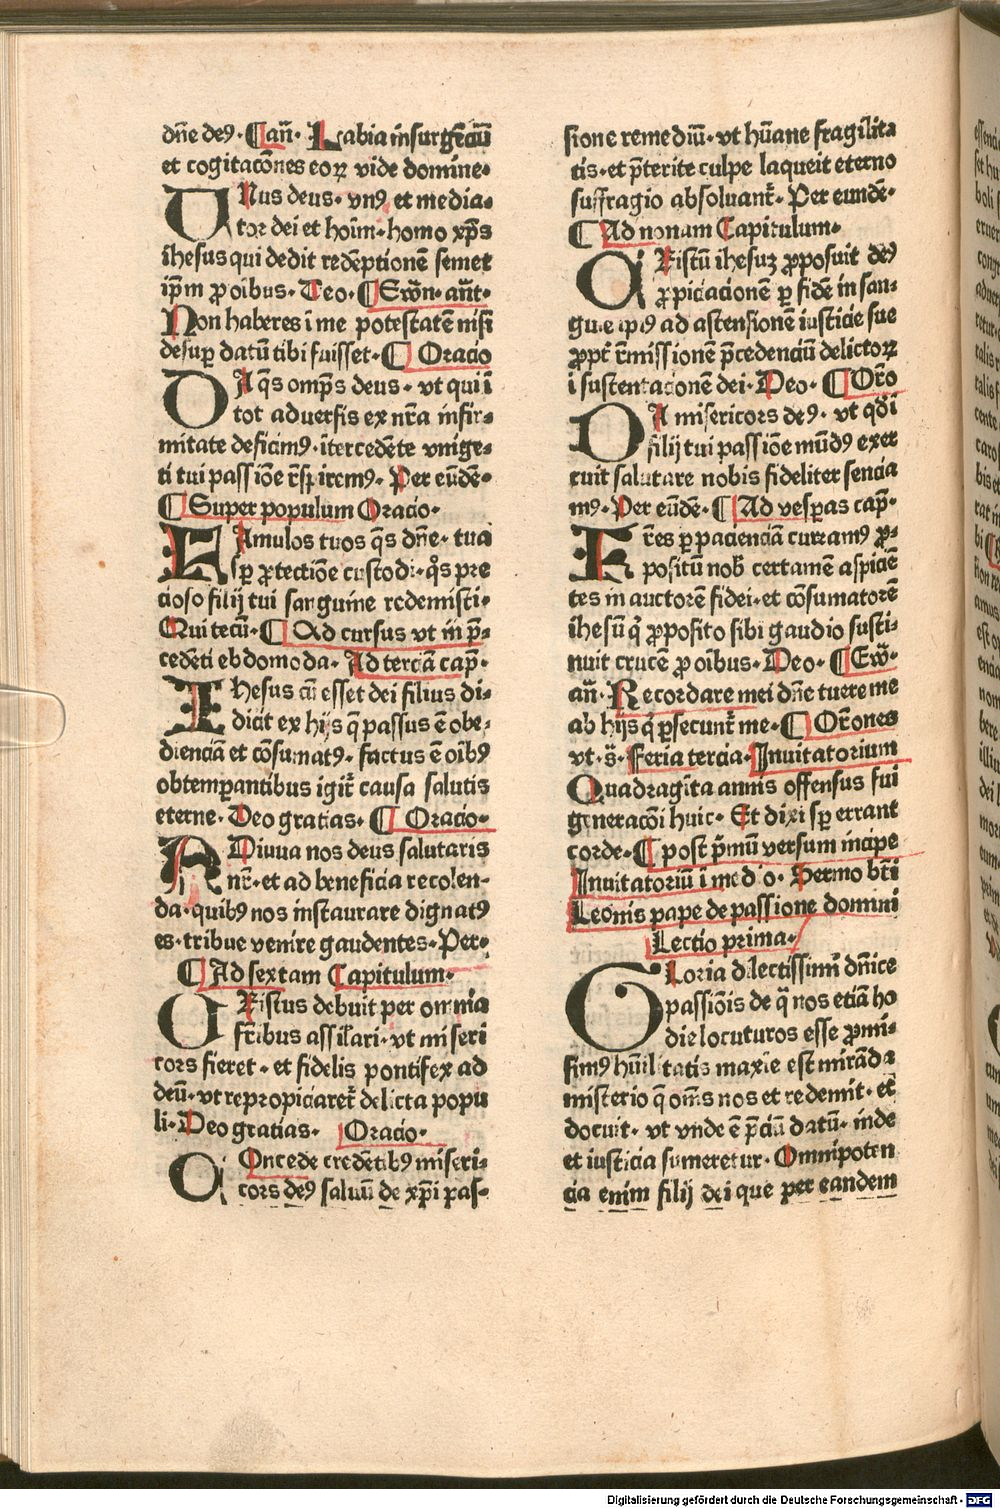 dn̄e deꝰ. ¶ an̄. Labia insurgēciū
et cogitacōnes eoꝝ vide domine.
UNus deus. vnꝰ et media-
tor dei et hoīm. homo xp̄s
ihesus qui dedit redēptionē semet
ip̄m ꝓ oibus. Deo. ¶ Ewn̄. an̄t.
Non haberes ī me potestatē nisi
desuꝑ datū tibi fuisset. ¶ Oracio
DA q̄s omp̄s deus. vt qui ī
tot aduersis ex nr̄a infir-
mitate deficimꝰ. ītercedēte vnige-
ti tui passiōe r̄spiremꝰ. Per eūdē.
¶ Super populum Oracio.
FAmulos tuos q̄s dn̄e. tua
sꝑ ꝓtectiōe custodi. q̊s pre
cioso filij tui sanguine redemisti.
Qui tecū. ¶ Ad cursus vt in p̄-
cedēti ebdomoda. Ad terciā cap̄.
IHesus cū esset dei filius di-
dicit ex hijs q̄ passus ē obe-
dienciā et cōsumatꝰ. factus ē oībꝰ
obtemꝑantibus igit᷑ causa salutis
eterne. Deo gratias. ¶ Oracio.
ADiuua nos deus salutaris
nr̄. et ad beneficia recolen-
da. quibꝰ nos instaurare dignatꝰ
es. tribue venire gaudentes. Per.
¶ Ad sextam Capitulum.
CRistus debuit per omnia
fr̄ibus assilari. vt miseri
cors fieret. et fidelis pontifex ad
deū. vt repropiciaret᷑ delicta popu
li. Deo gratias. Oracio.
COncede credētibꝰ miseri-
cors deꝰ saluū de xp̄i pas-
sione remediū. vt hūane fragilita
tis. et p̄terite culpe laqueit eterno
suffragio absoluant᷑. Per eundē.
¶ Ad nonam Capitulum.
CRistū ihesuꝫ ꝓposuit deꝰ
ꝓpiciacionē ꝑ fidē in san-
guine ipiꝰ ad astensionē iusticie sue
ꝓpt̄ r̄missionē p̄cedenciū delictoꝝ
ī sustentacionē dei. Deo. ¶ Or̄o
DA misericors deꝰ. vt qd̄ ī
filij tui passiōe mūdꝰ exer
cuit salutare nobis fideliter sencia
mꝰ. Per eūdē. ¶ Ad veſꝑas cap̄.
FR̄es ꝑ pacienciā curramꝰ ꝓ-
positū nob̄ certamen aspiciē
tes in auctorē fidei. et cōsumatorē
ihesū q̄ ꝓposito sibi gaudio susti-
nuit crucē ꝓ oibus. Deo. ¶ Ew̄.
an̄. Recordare mei dn̄e tuere me
ab hijs q̄ ꝑsecunt᷑ me. ¶ Or̄ones
vt. s̄. Feria tercia. Inuitatorium
Quadragīta annis offensus fui
generacōni huic. Et dixi sꝑ errant
corde. ¶ post p̄mū versum incipe
Inuitatoriū ī medio. Sermo bt̄i
Leonis pape de passione domini
Lectio prima.
GLoria dilectissimi dn̄ice
passiōis de q̄ nos etiā ho
die locuturos esse ꝓmi-
simꝰ hūilitatis maxie est mirāda
misterio q̄ om̄s nos et redemit. et
docuit. vt vnde ē p̄ciū datū. inde
et iusticia sumeretur. Omnipoten
cia enim filij dei que per eandem
Digitalisierung gefördert durch die Deutsche Forschungsgemeinschaft - DFG